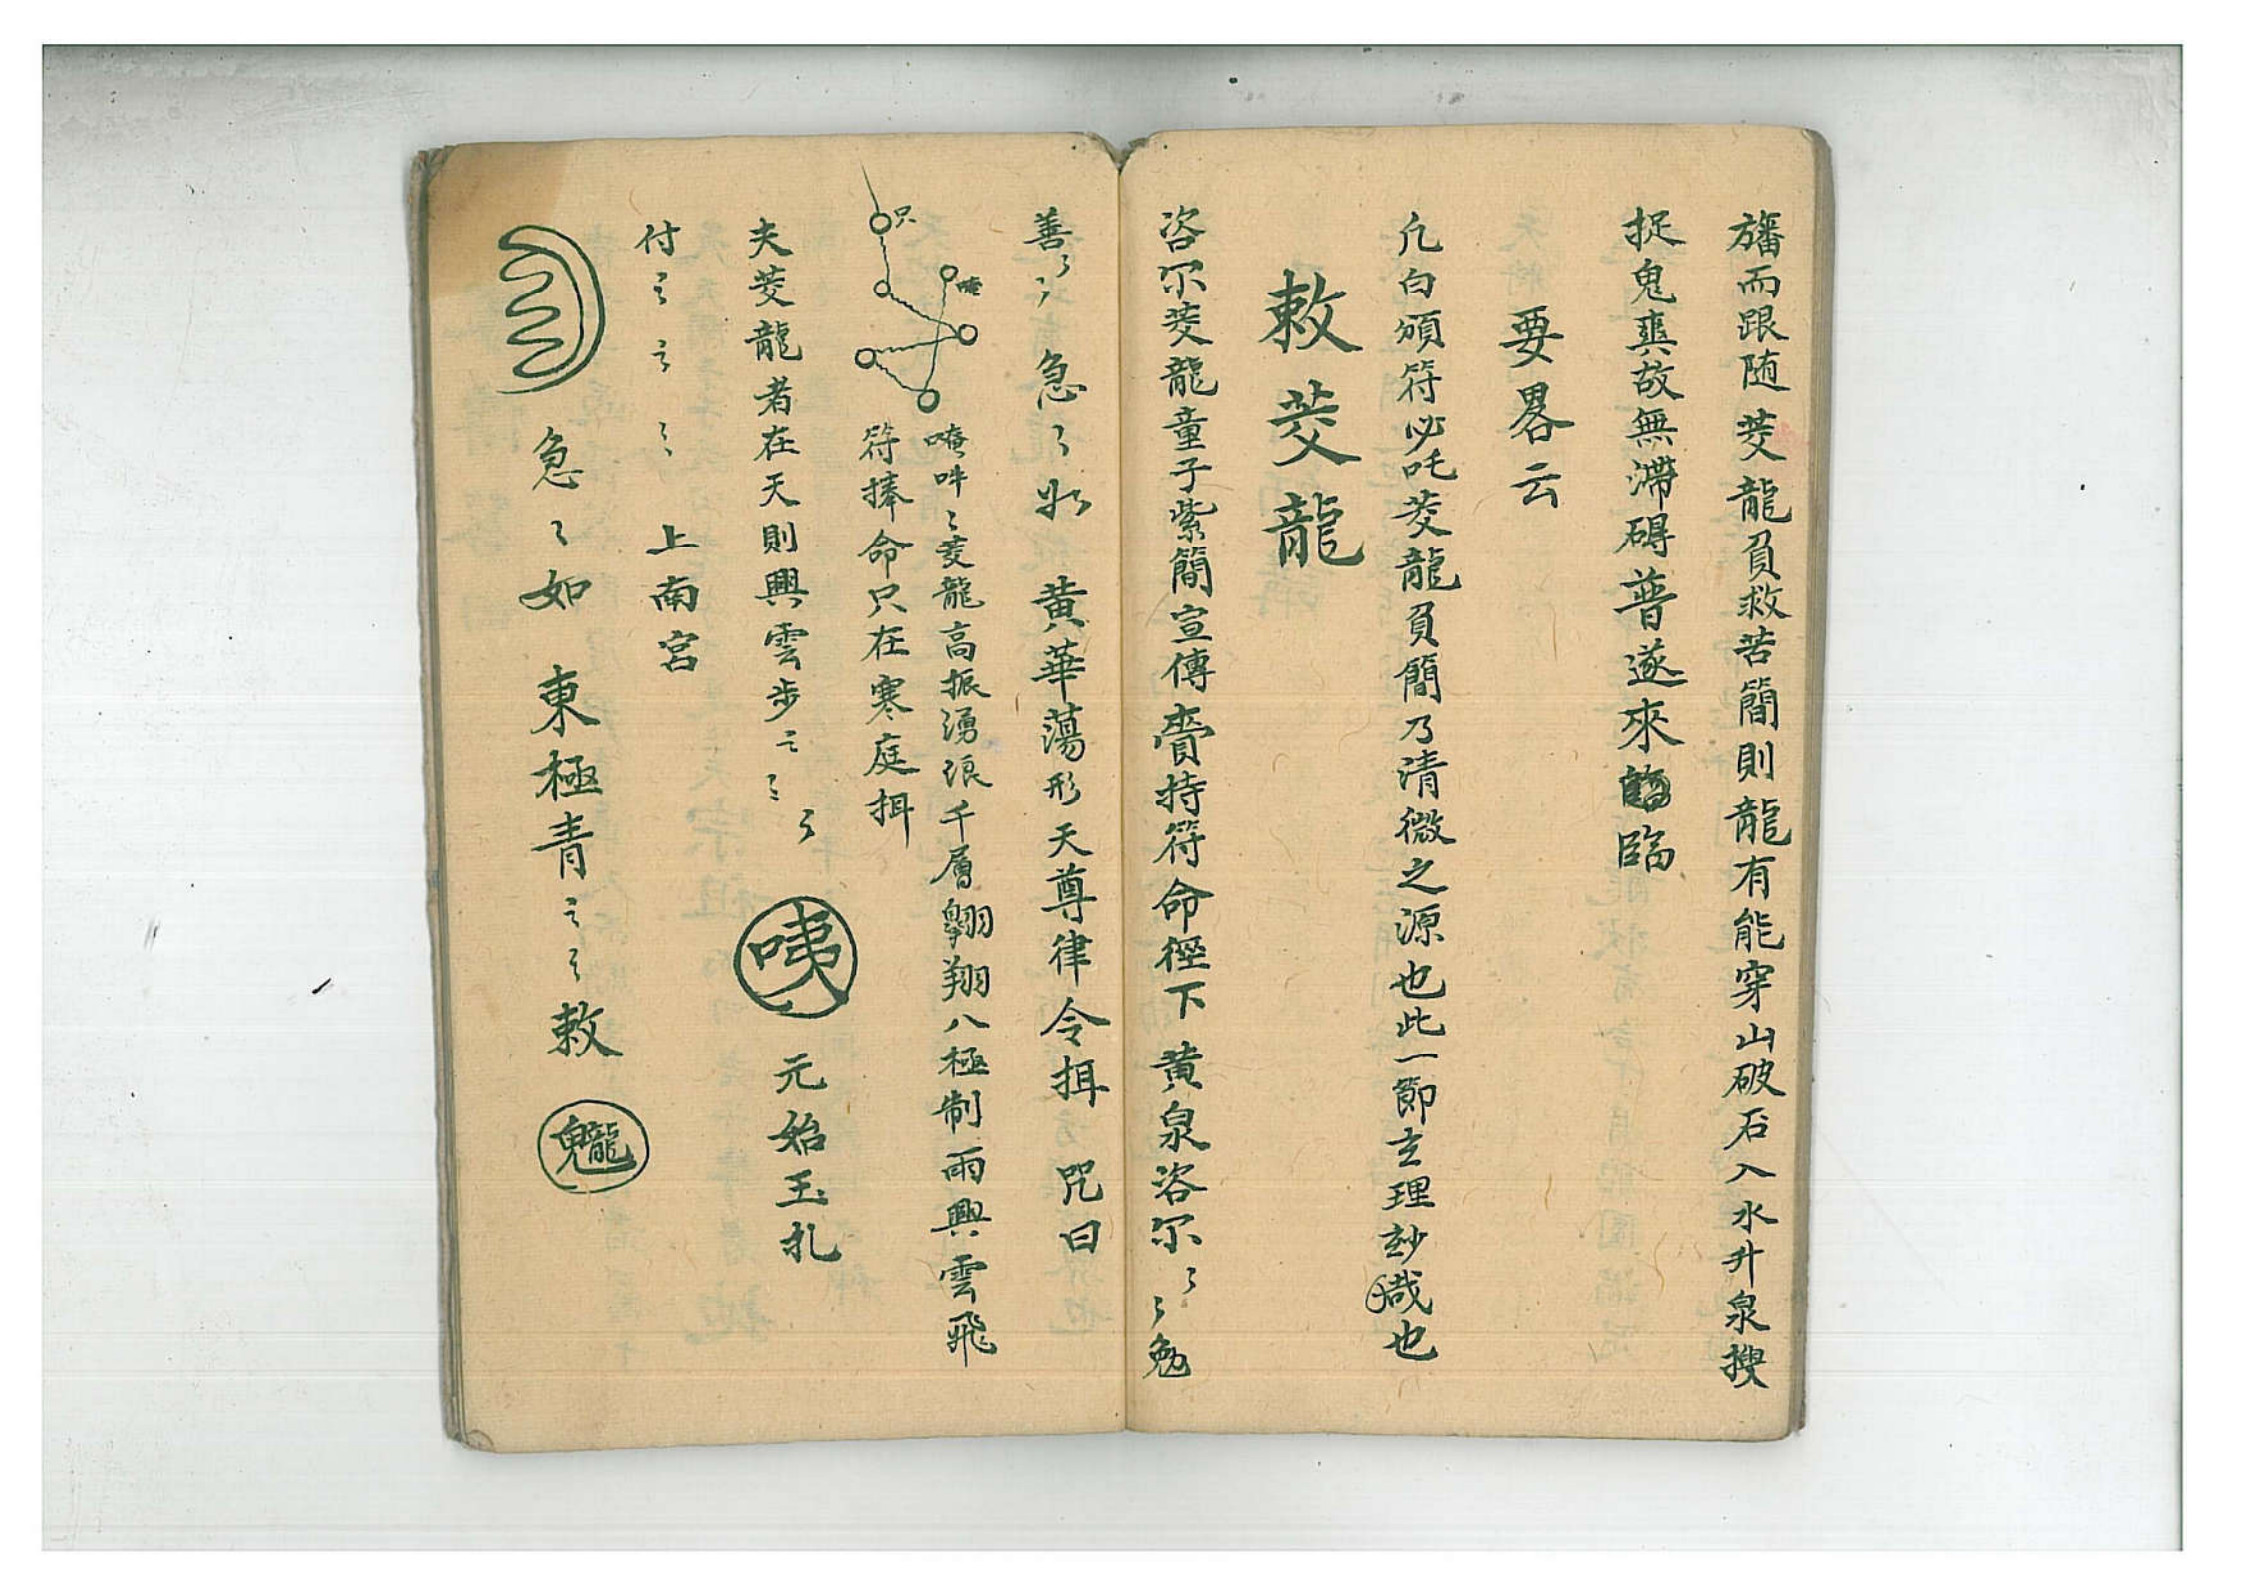 旛而跟随茭龍負救苦簡則龍有能穿山破石入水升泉搜
捉鬼爽故無滯碍普遂來臨
要畧云
凡白頒符必吒茭龍負簡乃清微之源也此一節玄理玅哉也
敕茭龍
咨尔茭龍童子紫簡宣傳賫持符命徑下黄泉咨尔〻〻勉
善〻〻急〻如黄華蕩形天尊律令揖咒曰
只
唵
唵吽〻茭龍高振湧浪千層翺翔八極制雨興雲飛
符捧命只在寒庭揖
夫茭龍者在天則興雲步〻〻〻咦元始玉札
付〻〻〻上南宫
急〻如東極青〻〻敕